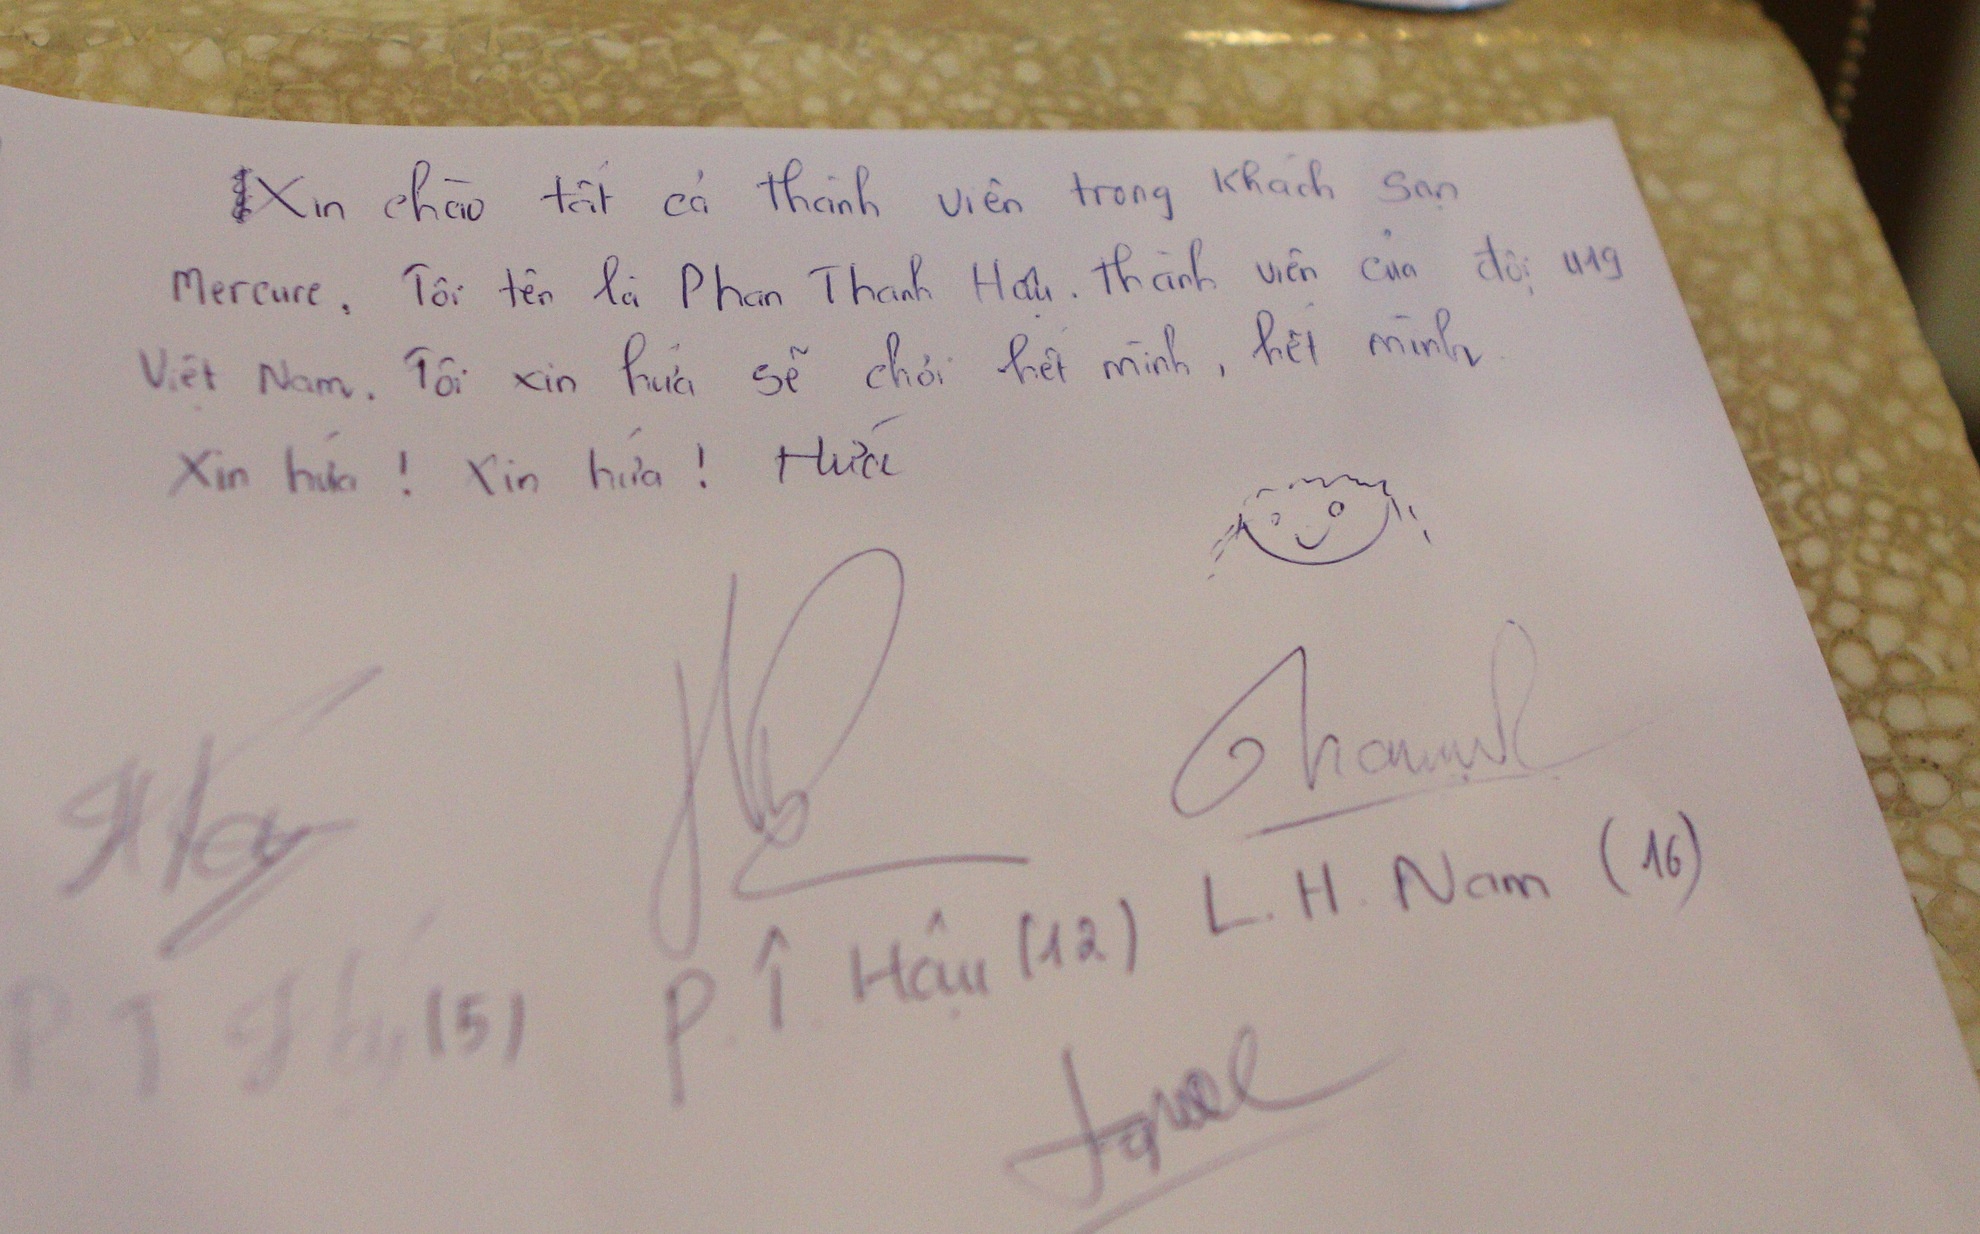 Xin chào tất cả thành viên trong khách sạn
Mercure. Tôi tên là Phan Thanh Hậu. thành viên của đội U19
Việt Nam. Tôi xin hứa sẽ chơi hết mình, hết mình
Xin hứa! Xin hứa! Hứa
P. T Hậu (12) L. H. Nam (16)
(5)